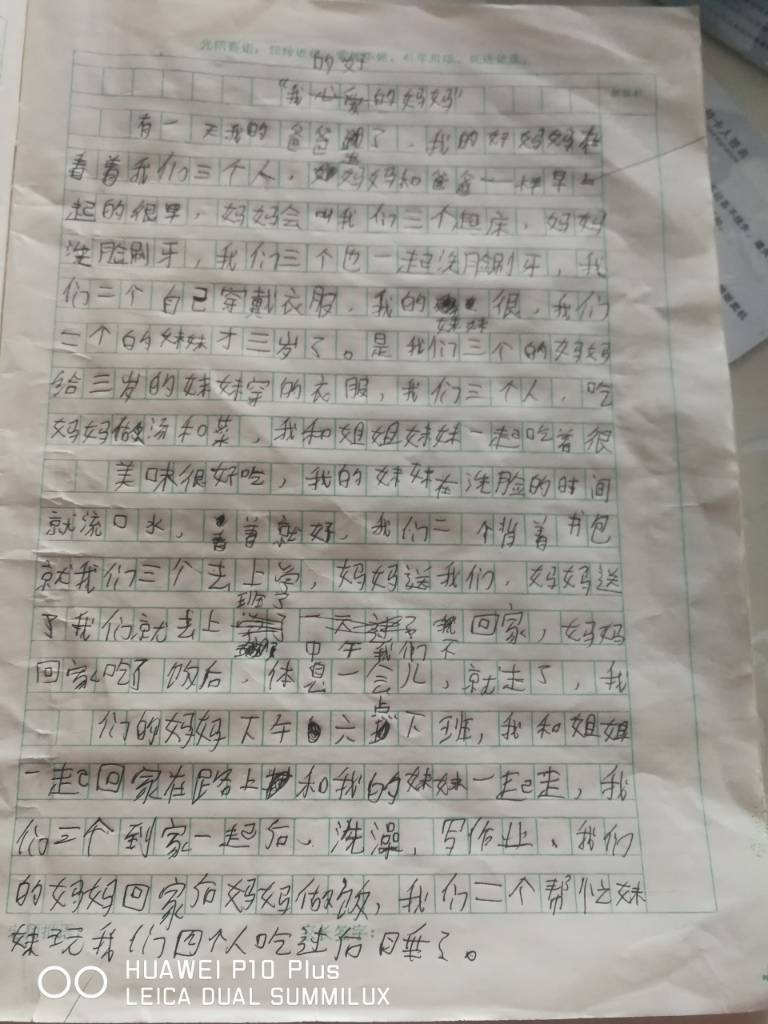 的好
"我心爱的妈妈"
有一天我的爸爸 了,我的 妈妈在
看着我们三个人, 妈妈和爸爸一样早上
起的很早,妈妈会叫我们三个起床,妈妈
洗脸刷牙,我们三个也一起洗脸刷牙,我
们二个自己穿戴衣服,我的 很,我们
妹妹
二个的妹妹才三岁了。是我们三个的妈妈
给三岁的妹妹穿的衣服,我们三个人,吃
妈妈做汤和菜,我和姐姐妹妹一起吃着很
美味很好吃,我的妹妹在洗脸的时间
就流口水, 着就好,我们二个背着书包
就我们三个去上学,妈妈送我们,妈妈送
班了
了我们就去上 一天 回家,妈妈
中午我们下
回家吃了饭后,体息一会儿,就走了,我
点
们的妈妈下午 六 下班,我和姐姐
一起回家在路上 和我的妹妹一起走,我
们三个到家一起后、洗澡,写作业、我们
的妈妈回家后妈妈做饭,我们二个帮忙妹
妹玩我们四个人吃过后睡了。
HUAWEI P10 Plus
LEICA DUAL SUMMILUX